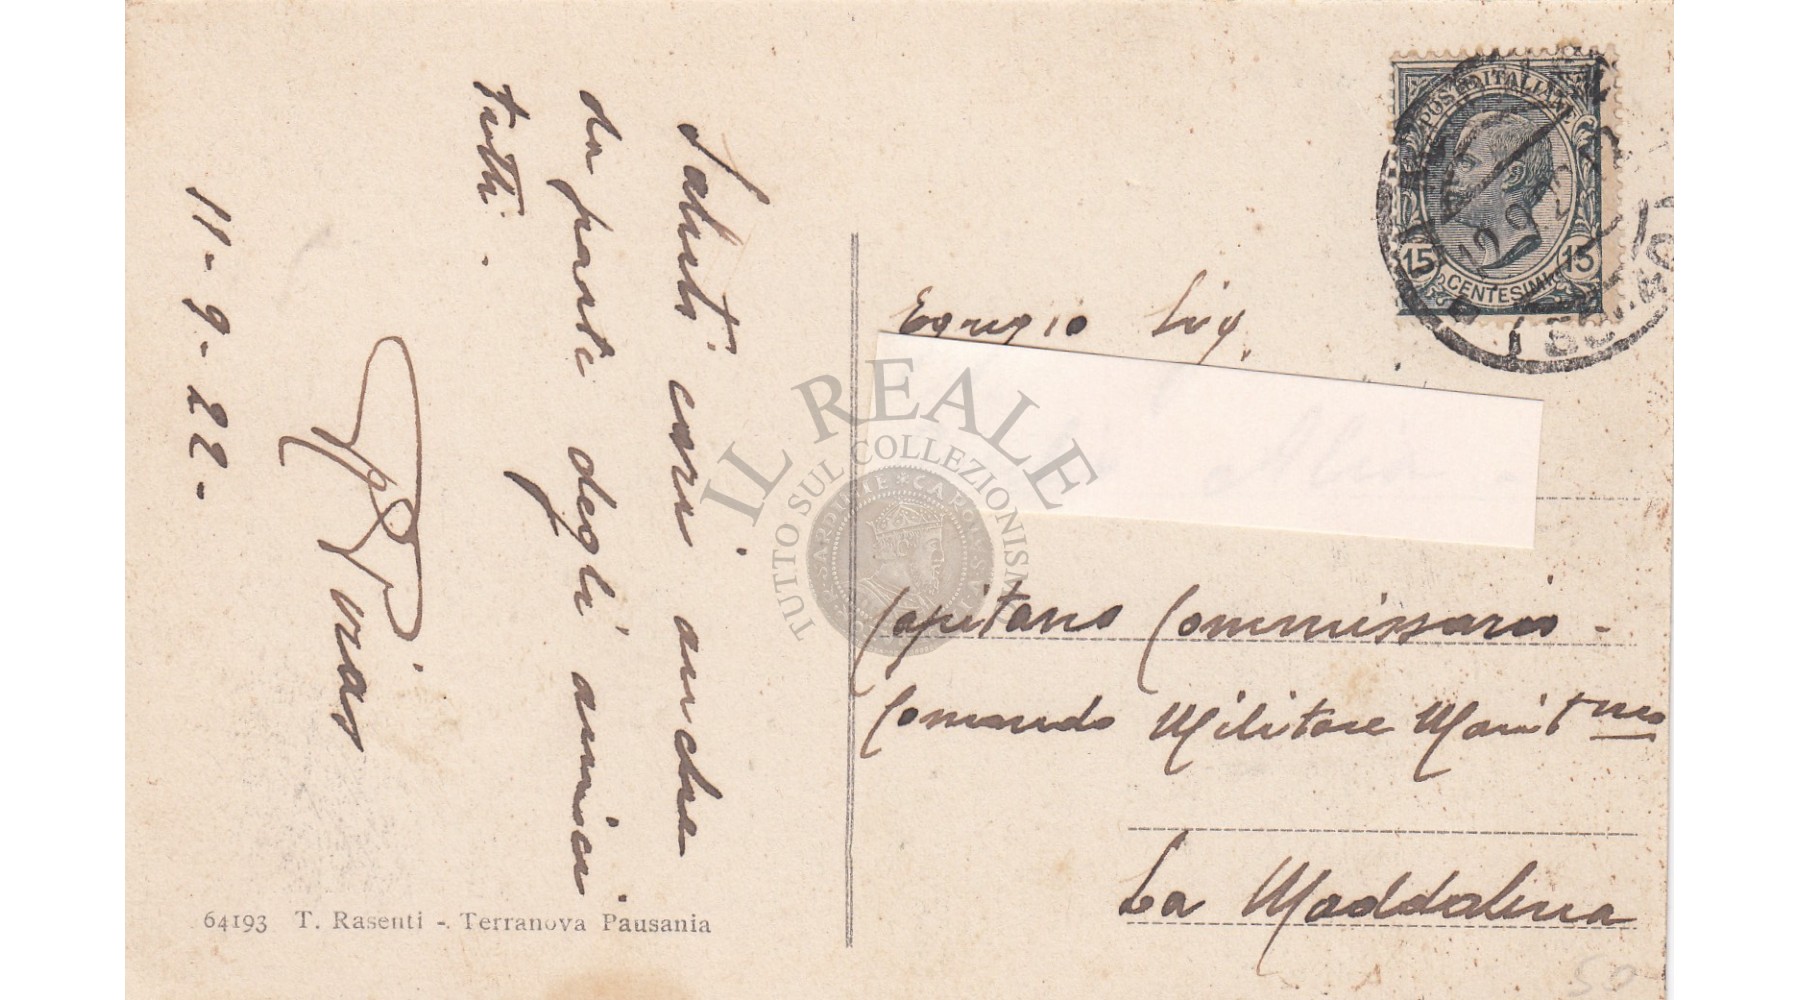 Saluti cari anche
da parte degli amici
tutti.
11-9-22-
64193 T. Rasenti - Terranova Pausania
POSTE ITALIANE
15 15
CENTESIMI
Egregio Sig.
Capitano Commissario -
Comando Militare Maritmo
La Maddalena
50
IL REALE
TUTTO SUL COLLEZIONISMO